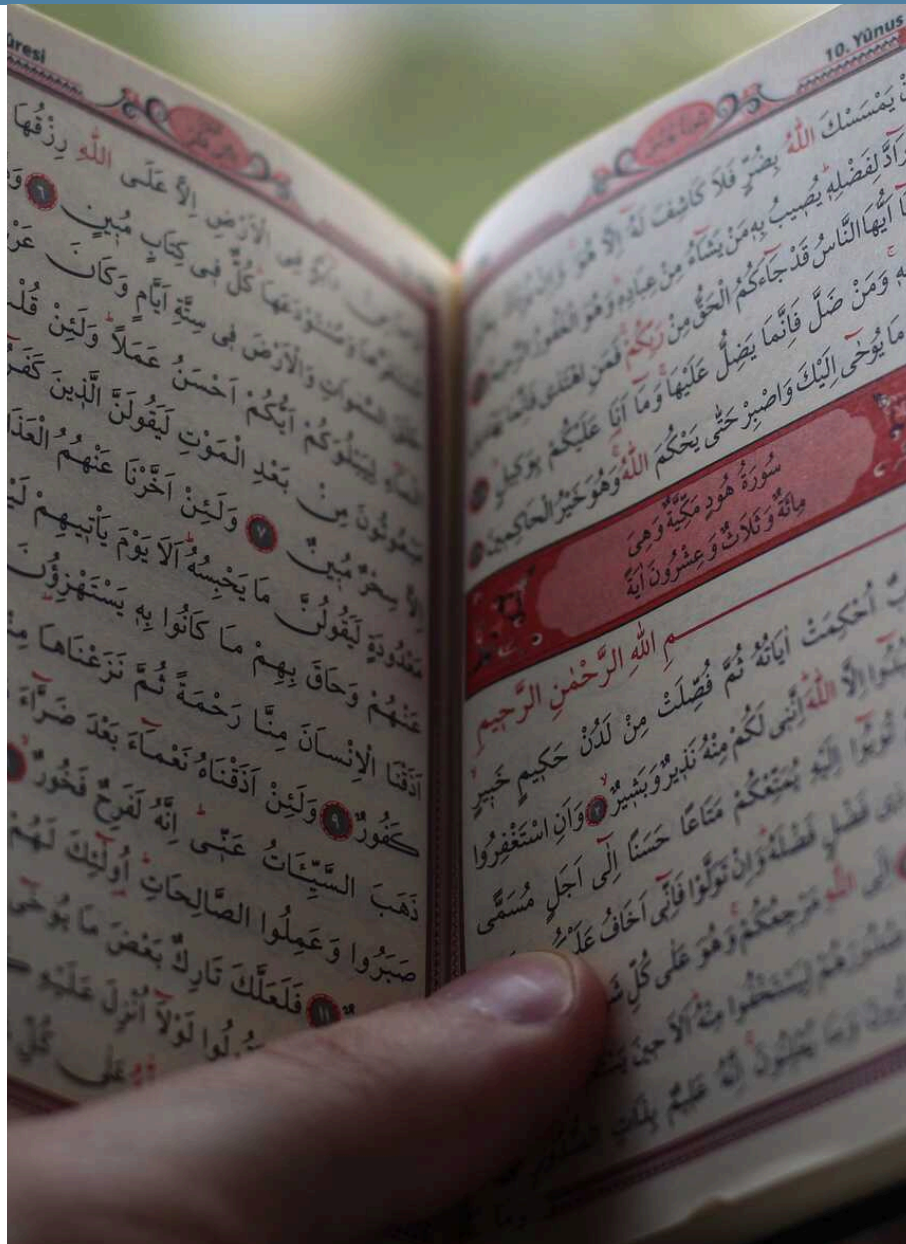 10. Yûnus
يَمْسَسْكَ اللّٰهُ بِضُرٍّ فَلَا كَاشِفَ لَهُٓ اِلَّا هُوَۚ وَاِنْ
رَٓادَّ لِفَضْلِه۪ۜ يُص۪يبُ بِه۪ مَنْ يَشَٓاءُ مِنْ عِبَادِه۪ۜ وَهُوَ الْغَفُورُ الرَّح۪يمُ
يَٓا اَيُّهَا النَّاسُ قَدْ جَٓاءَكُمُ الْحَقُّ مِنْ رَبِّكُمْۚ فَمَنِ اهْتَدٰى فَاِنَّمَا يَهْتَد۪ي
وَمَنْ ضَلَّ فَاِنَّمَا يَضِلُّ عَلَيْهَاۚ وَمَٓا اَنَا۬ عَلَيْكُمْ بِوَك۪يلٍ
مَا يُوحٰٓى اِلَيْكَ وَاصْبِرْ حَتّٰى يَحْكُمَ اللّٰهُۚ وَهُوَ خَيْرُ الْحَاكِم۪ينَ
سُورَةُ هُودٍ مَكِّيَّةٌ وَهِيَ
مِائَةٌ وَثَلَاثٌ وَعِشْرُونَ اٰيَةً
اللّٰهِ الرَّحْمٰنِ الرَّح۪يمِ
اُحْكِمَتْ اٰيَاتُهُ ثُمَّ فُصِّلَتْ مِنْ لَدُنْ حَك۪يمٍ خَب۪يرٍۙ
اِلَّا اللّٰهَۜ اِنَّن۪ي لَكُمْ مِنْهُ نَذ۪يرٌ وَبَش۪يرٌۙ ٢ وَاَنِ اسْتَغْفِرُوا
تُوبُٓوا اِلَيْهِ يُمَتِّعْكُمْ مَتَاعًا حَسَنًا اِلٰٓى اَجَلٍ مُسَمًّى
ذ۪ي فَضْلٍ فَضْلَهُۜ وَاِنْ تَوَلَّوْا فَاِنّ۪ٓي اَخَافُ
اِلَى اللّٰهِ مَرْجِعُكُمْۚ وَهُوَ عَلٰى كُلِّ
صُدُورَهُمْ لِيَسْتَخْفُوا مِنْهُۜ اَلَا ح۪ينَ
وَمَا يُعْلِنُونَۚ اِنَّهُ عَل۪يمٌ بِذَاتِ الصُّدُورِ
فِي الْاَرْضِ اِلَّا عَلَى اللّٰهِ رِزْقُهَا
وَمُسْتَوْدَعَهَاۜ كُلٌّ ف۪ي كِتَابٍ مُب۪ينٍ ٦
السَّمٰوَاتِ وَالْاَرْضَ ف۪ي سِتَّةِ اَيَّامٍ وَكَانَ
الْمَٓاءِ لِيَبْلُوَكُمْ اَيُّكُمْ اَحْسَنُ عَمَلًاۜ وَلَئِنْ
مَبْعُوثُونَ مِنْ بَعْدِ الْمَوْتِ لَيَقُولَنَّ الَّذ۪ينَ
اِلَّا سِحْرٌ مُب۪ينٌ ٧ وَلَئِنْ اَخَّرْنَا عَنْهُمُ
مَعْدُودَةٍ لَيَقُولُنَّ مَا يَحْبِسُهُۜ اَلَا يَوْمَ يَأْت۪يهِمْ
عَنْهُمْ وَحَاقَ بِهِمْ مَا كَانُوا بِه۪ يَسْتَهْزِؤُ۫نَ
اَذَقْنَا الْاِنْسَانَ مِنَّا رَحْمَةً ثُمَّ نَزَعْنَاهَا
كَفُورٌ ٩ وَلَئِنْ اَذَقْنَاهُ نَعْمَٓاءَ بَعْدَ ضَرَّٓاءَ
ذَهَبَ السَّيِّـَٔاتُ عَنّ۪يۜ اِنَّهُ لَفَرِحٌ فَخُورٌ
صَبَرُوا وَعَمِلُوا الصَّالِحَاتِۜ اُو۬لٰٓئِكَ لَهُمْ
١١ فَلَعَلَّكَ تَارِكٌ بَعْضَ مَا يُوحٰٓى
لَوْلَٓا اُنْزِلَ عَلَيْهِ
عَلٰى كُلِّ